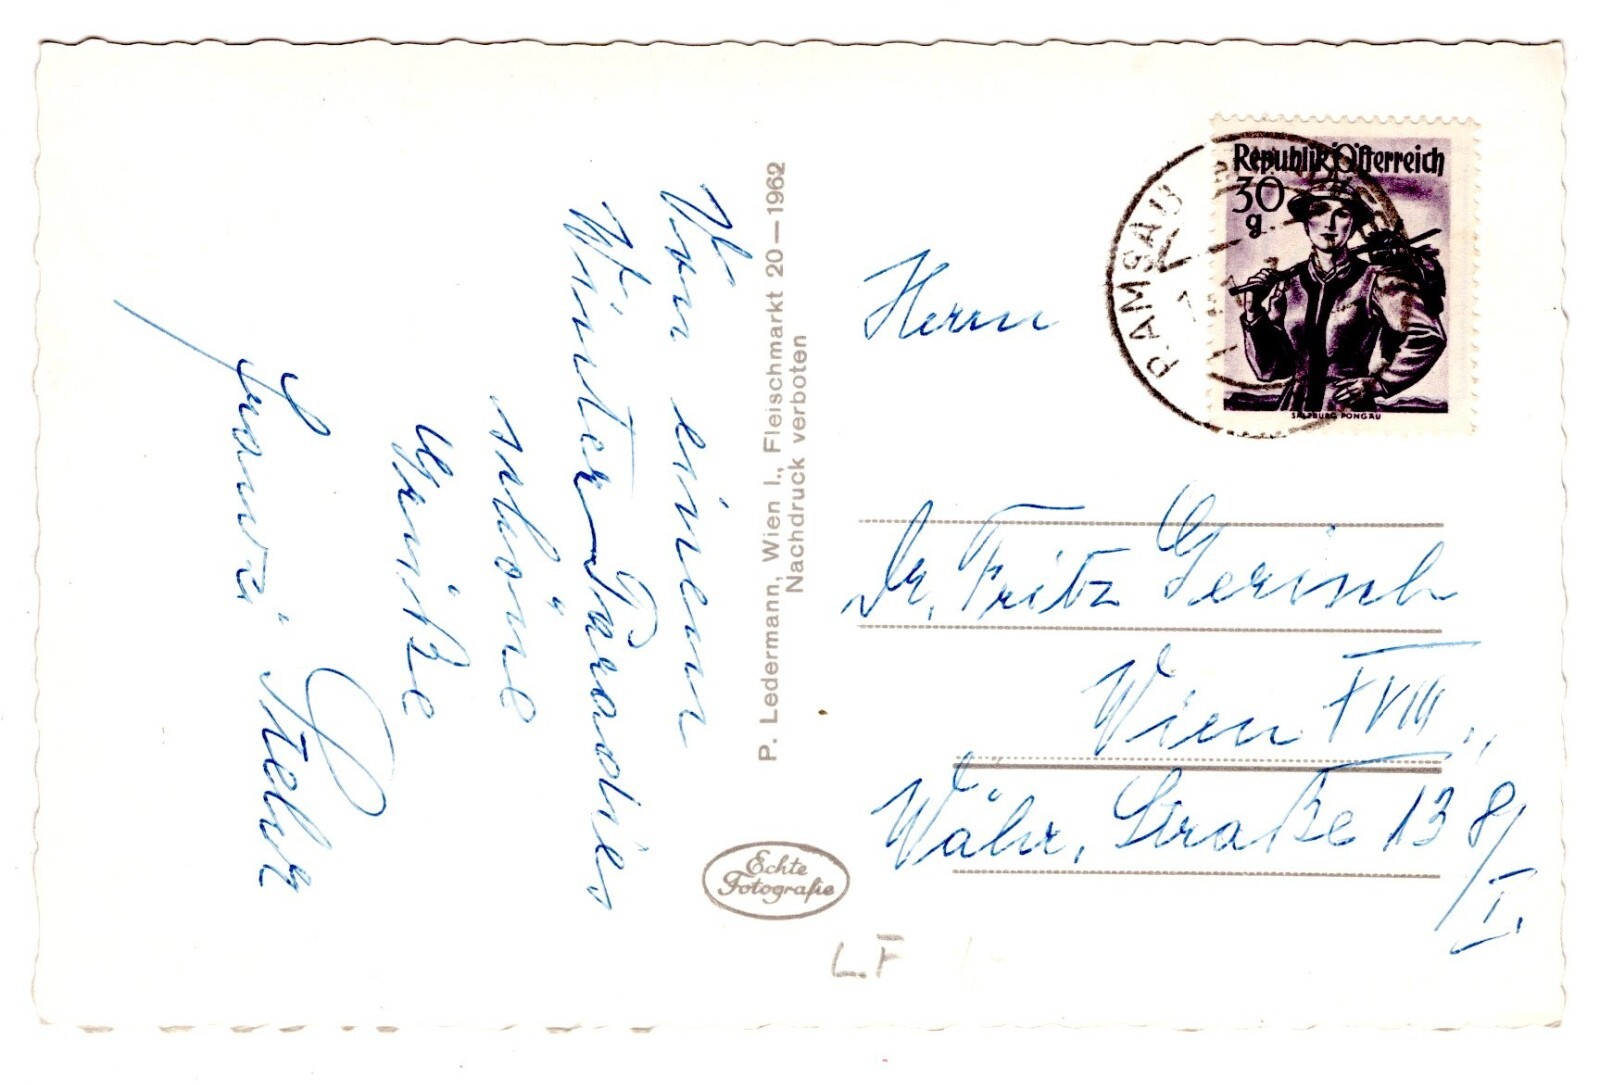 Von einem
Winter-Paradies
schöne
Grüße
P. Ledermann, Wien I., Fleischmarkt 20—1962
Nachdruck verboten
Echte
Fotografie
L.F
Republik Österreich
30
g
SALZBURG PONGAU
RAMSAU
Herrn
Dr. Fritz Gerisch
Wien XVIII.,
Währ. Straße 138/
I.